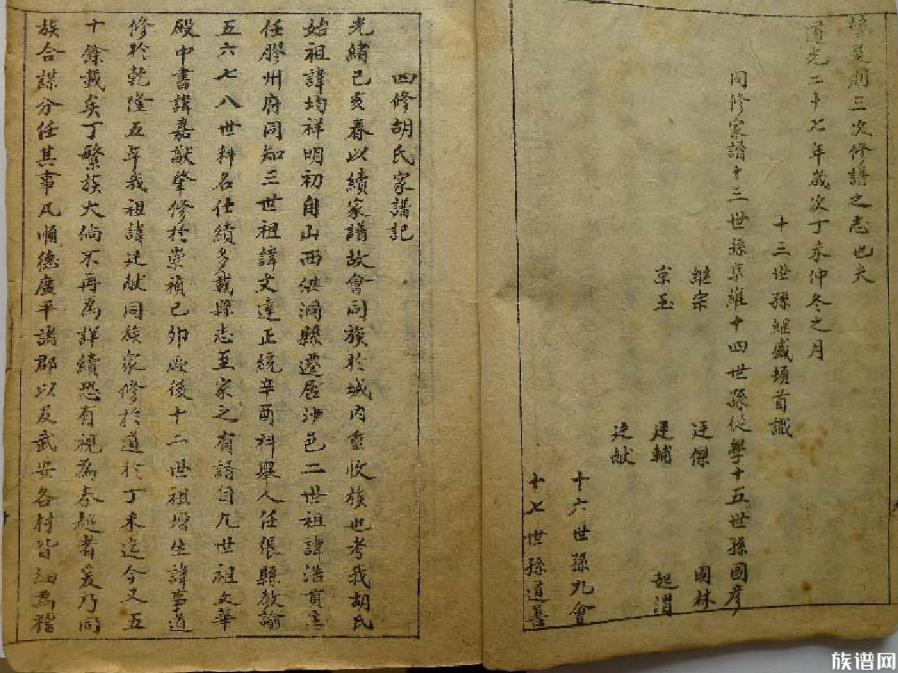 三次修譜之志也夫
道光二十七年歲次丁未仲冬之月
十三世孫繼盛頓首識
同修家譜十三世孫阜維十四世孫從學十五世孫國彥
繼宗 廷傑 國林
京玉 廷輔 起渭
廷獻
十六世孫九會
十七世孫道善
四修胡氏家譜記
光緒己亥春以續家譜故會同族於城內重收族也考我胡氏
始祖諱均祥明初自山西洪洞縣遷居沙邑二世祖諱浩貢生
任膠州府同知三世祖諱文達正統辛酉科舉人任張縣教諭
五六七八世科名仕績多載縣志至家之有譜自九世祖文華
殿中書諱嘉猷肇修於崇禎己卯厥後十二世祖增生諱事道
修於乾隆五年我祖諱廷献同族家修於道於丁未迄今又五
十餘載矣丁繁族大倘不再為詳續恐有視為秦越者爰乃同
族合謀分任其事凡順德廣平諸郡以及武安各村皆細為稽
族谱网